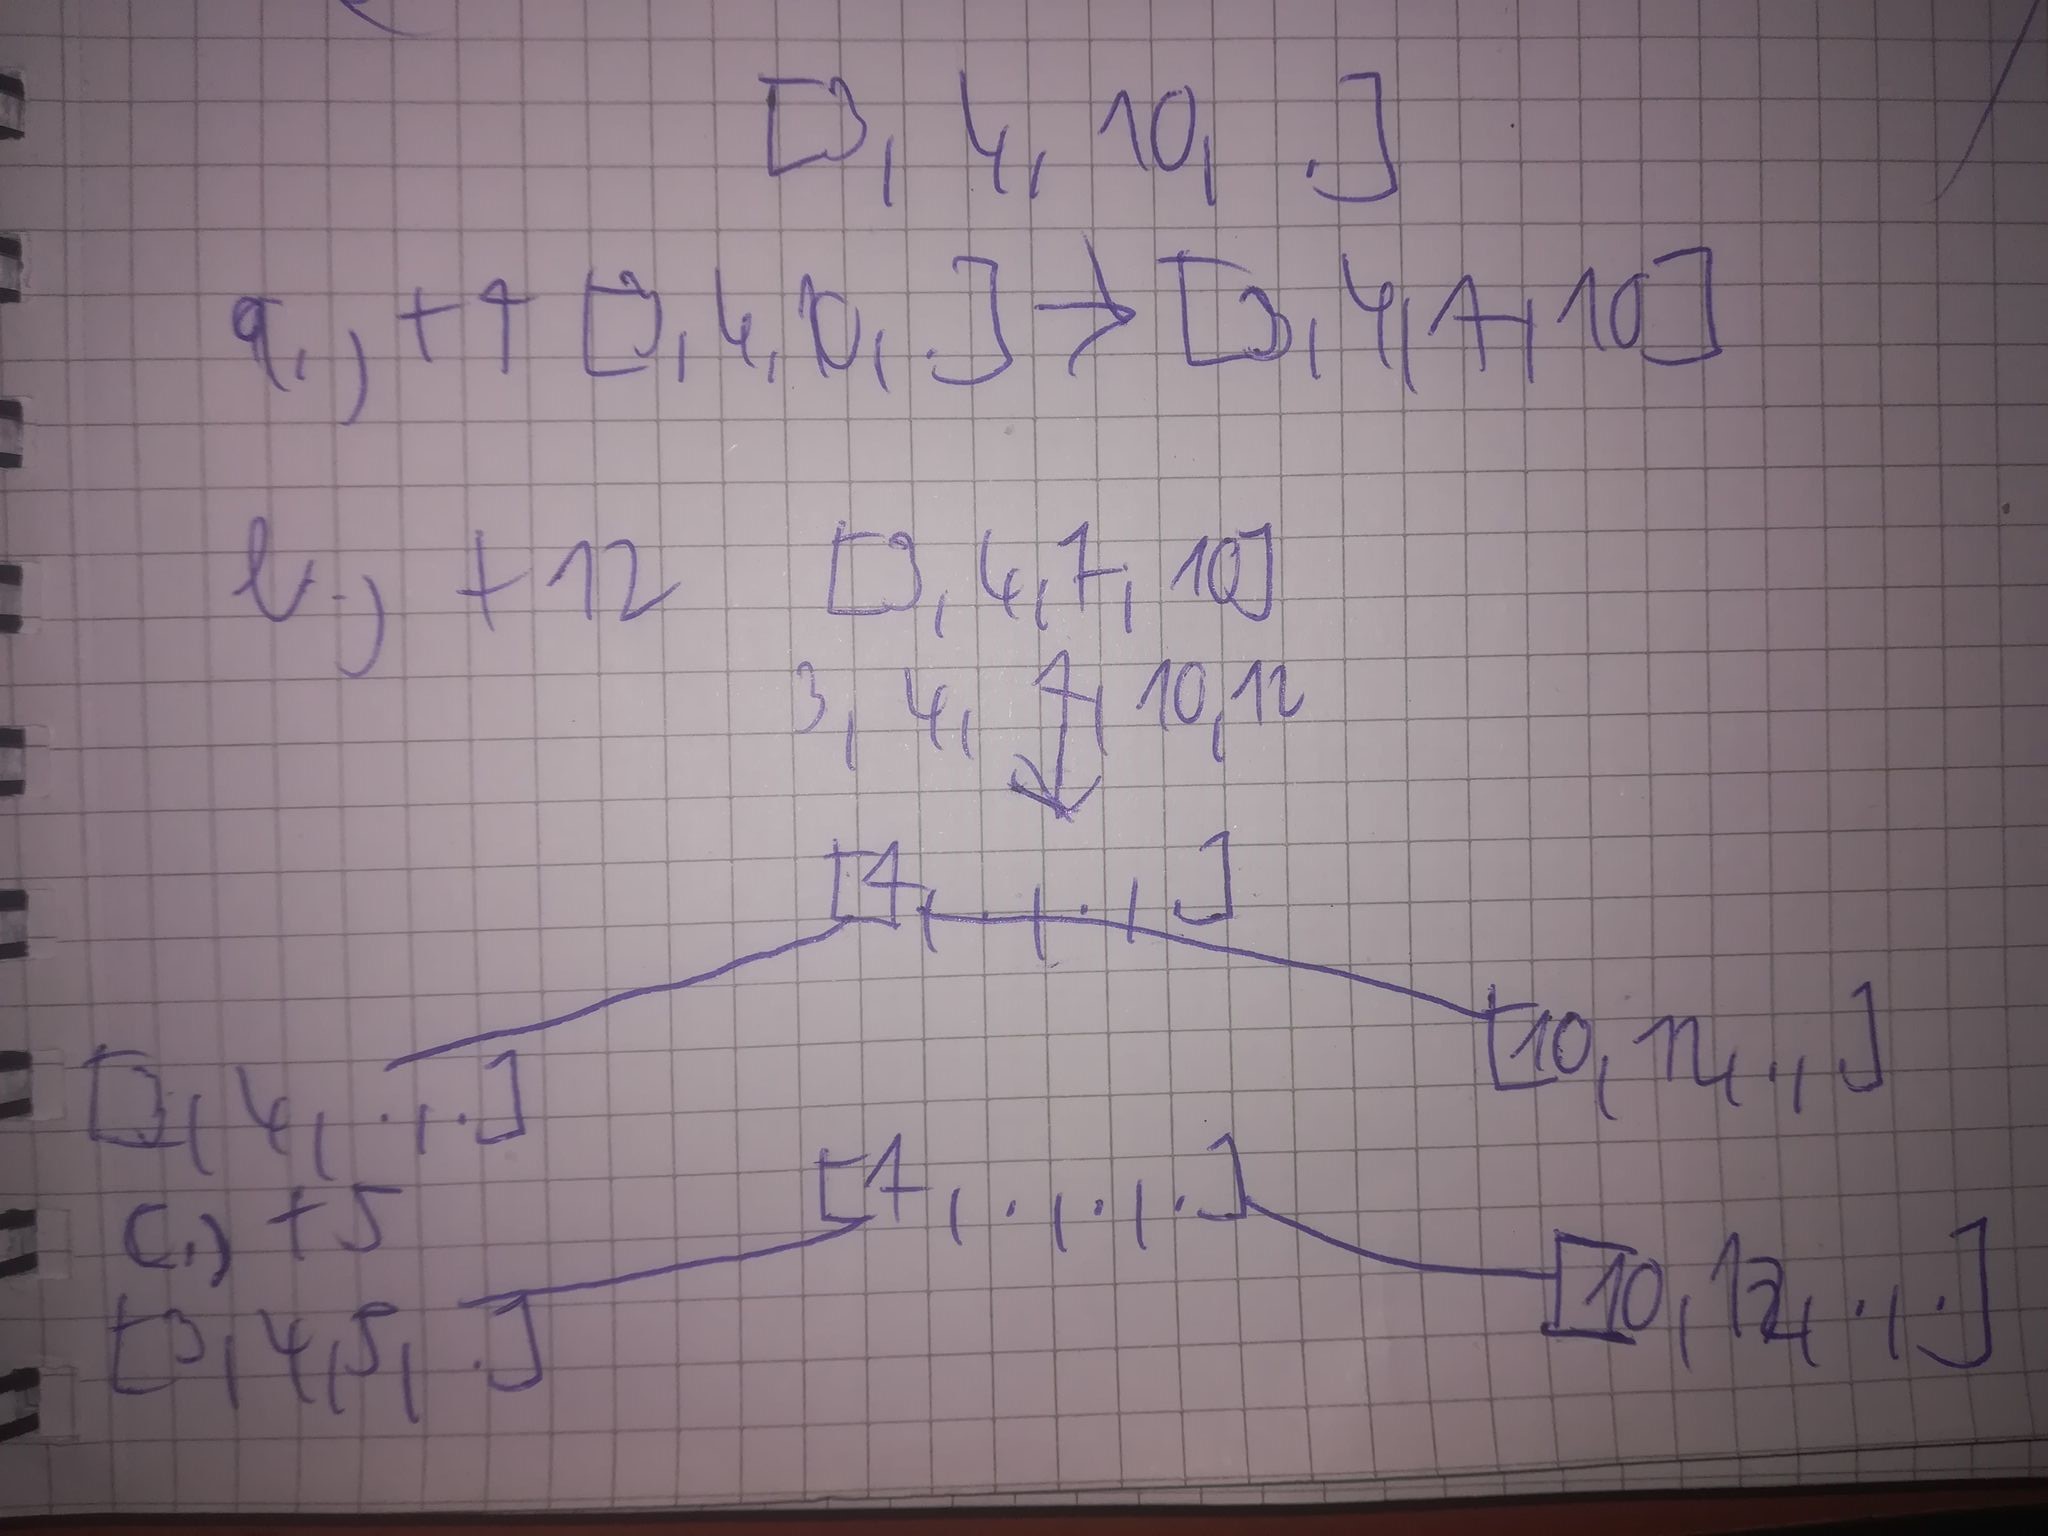 [3, 4, 10, .]
a.) +7 [3, 4, 10, .] → [3, 4, 7, 10]
b.) +12 [3, 4, 7, 10]
3, 4, 7, 10, 12
[7, ., ., .]
[3, 4, ., .]
[10, 12, ., ]
c.) +5
[7, ., ., .]
[3, 4, 5, .]
[10, 12, ., .]